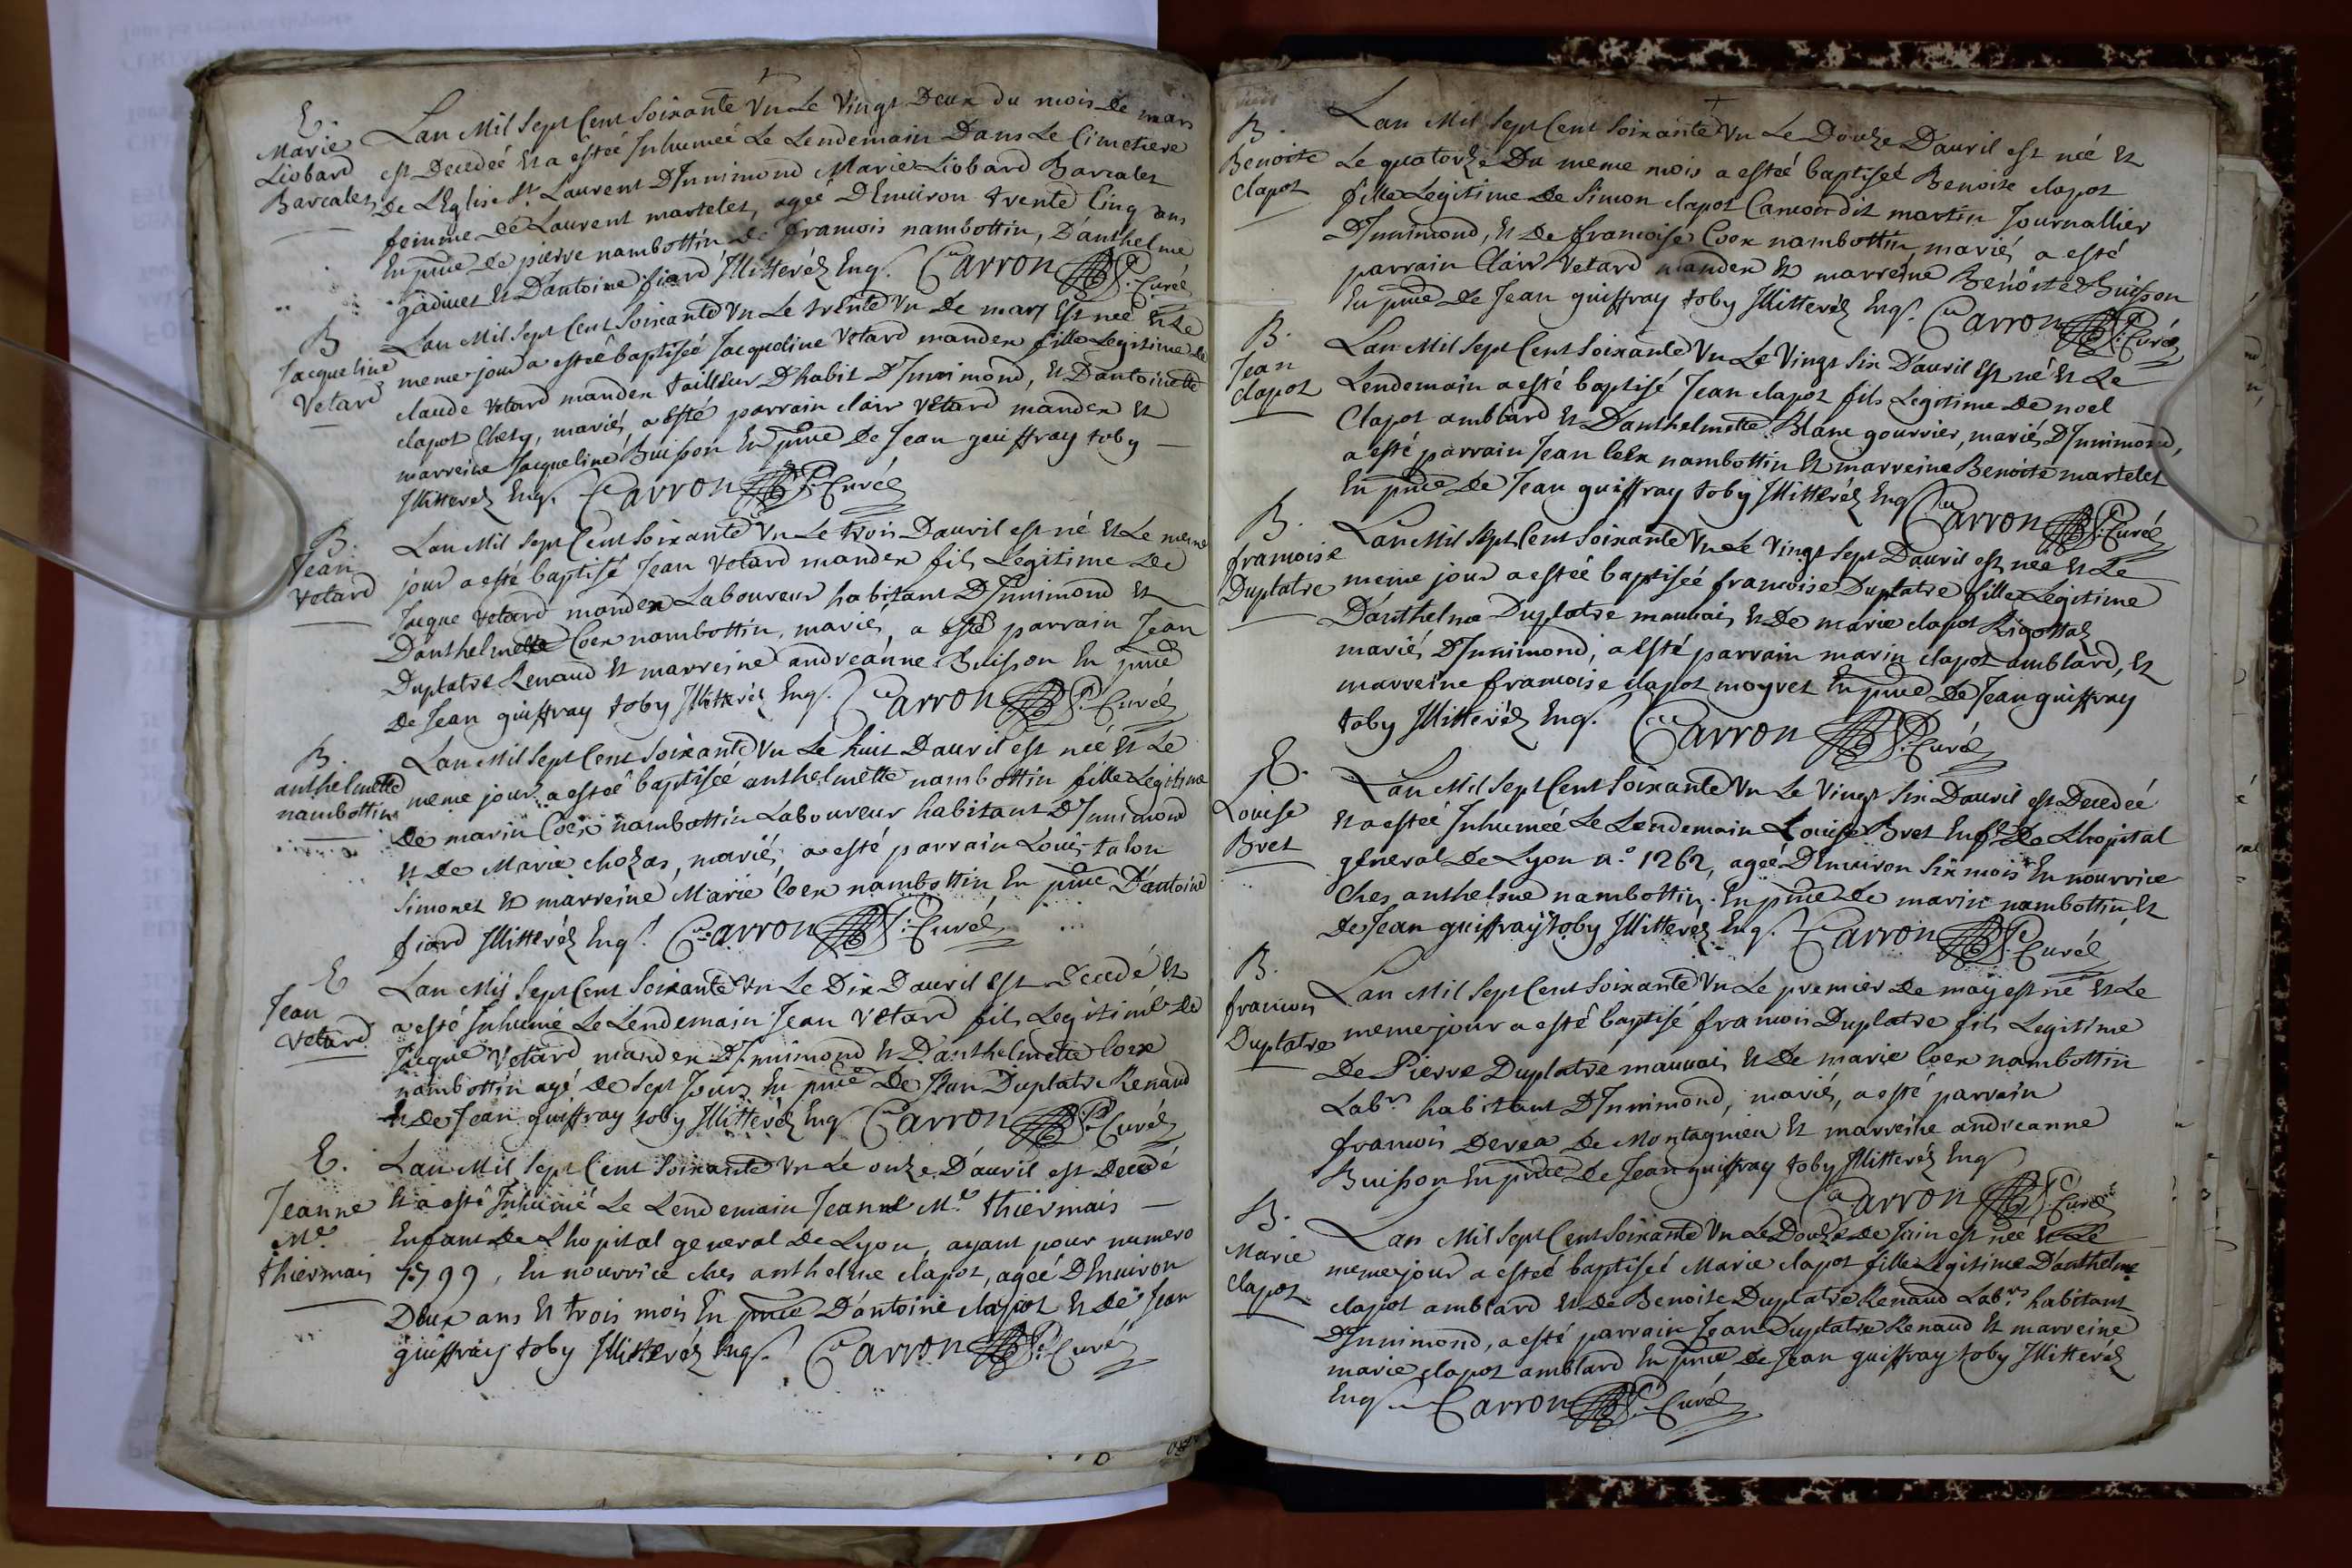 E.
Marie
Liobard
Barcalet
Lan Mil Sept Cent Soixante Vn Le Vingt Deux du mois de mars
est Decedeé et a estée Inhumeé Le Lendemain Dans Le Cimetiere
De LEglise St. Laurent DInnimond Marie Liobard Barcalet
femme De Laurent martelet, ageé DEnuiron trente Cinq ans
En pnce de pierre nambottin De francois nambottin, D'anthelme
gadiuet et Dantoine fiard Illitteréz Enqs. Carron P. Curé
B
Jacqueline
Vetard
Lan Mil Sept Cent Soixante Vn Le trente Vn De mars Est neé et Le
meme jour a esteé baptiseé Jacqueline Vetard manden fille Legitime de
claude Vetard manden tailleur Dhabit DInnimond, et Dantoinette
clapot Chety, mariés a esté parrain clair Vetard manden et
marreine Jacqueline Buisson En pnce De Jean guiffray toby
Illitterez Enqs. Carron P. Curé
B.
Jean
Vetard
Lan Mil Sept Cent Soixante Vn Le trois Dauril est né et Le meme
jour a esté baptisé Jean Vetard manden fils Legitime De
Jacque Vetard manden Laboureur habitant DInnimond et
Danthelmette Coex nambottin, mariés, a esté parrain Jean
Duplatre Renaud et marreine andreanne Buisson En pnce
De Jean guiffray toby Illitteréz Enqs. Carron P. Curé
B.
anthelmette
nambottin
Lan Mil Sept Cent Soixante Vn Le huit Dauril est neé et Le
meme jour a esteé baptiseé anthelmette nambottin fille Legitime
De marin Coex nambottin Laboureur habitant DInnimond
et De Marie chozas, mariés, a esté parrain Louis talon
Simonet et marreine Marie Coex nambottin En pnce D'antoine
fiard Illitteréz Enqs. Carron P. Curé
E
Jean
Vetard
Lan Mil Sept Cent Soixante Vn Le Dix Dauril est Decedé et
a esté Inhumé Le Lendemain Jean Vetard fils Legitime De
Jacque Vetard manden DInnimond et Danthelmette Coex
nambottin agé De Sept Jours En pnce De Jean Duplatre Renaud
et De Jean guiffray toby Illitteréz Enqs Carron P. Curé
E.
Jeanne
Me
thiermais
Lan Mil Sept Cent Soixante Vn Le onze D'auril est Decedé
et a esté Inhumé Le Lendemain Jeanne Me. thiermais
Enfant De Lhopital general De Lyon, ayant pour numero
7799, En nourrice ches anthelme clapot, ageé DEnuiron
Deux ans et trois mois En pnce D'antoine clapot et De Jean
guiffray toby Illitteréz Enqs. Carron P. Curé
B.
Benoite
clapot
Lan Mil Sept Cent Soixante Vn Le Douze Dauril est neé et
Le quatorze Du meme mois a esteé baptiseé Benoite clapot
fille Legitime De Simon clapot Camoin dit martin Journallier
DInnimond, et De francoise Coex nambottin mariés, a esté
parrain Clair Vetard manden et marreine Benoite Buisson
En pnce De Jean guiffray toby Illitteréz Enqs. Carron P. Curé
B.
Jean
Clapot
Lan Mil Sept Cent Soixante Vn Le Vingt Six Dauril Est né et Le
Lendemain a esté baptisé Jean clapot fils Legitime De noel
Clapot amblard et Danthelmette Blanc gourrier, mariés DInnimond,
a esté parrain Jean Coex nambottin et marreine Benoite martelet
En pnce De Jean guiffray toby Illitteréz Enqs Carron P. Curé
B.
francoise
Duplatre
Lan Mil Sept Cent Soixante Vn Le Vingt Sept Dauril est neé et Le
meme jour a esteé baptiseé francoise Duplatre fille Legitime
D'anthelme Duplatre mauuais et De marie clapot Rigottaz
mariés DInnimond, a Esté parrain marin clapot amblard, et
marreine francoise clapot moyret En pnce De Jean guiffray
toby Illitteréz Enqs. Carron P. Curé
E.
Louise
Bret
Lan Mil Sept Cent Soixante Vn Le Vingt Six Dauril est Decedeé
et a esteé Inhumeé Le Lendemain Louise Bret Enft De Lhopital
general De Lyon n.o 1262, ageé DEnuiron Six mois En nourrice
Ches anthelme nambottin. En pnce De marin nambottin et
De Jean guiffray toby Illitteréz Enqs. Carron P. Curé
B.
francois
Duplatre
Lan Mil Sept Cent Soixante Vn Le premier De may est né et Le
meme jour a esté baptisé francois Duplatre fils Legitime
De Pierre Duplatre mauuais et De marie Coex nambottin
Labrs habitant DInnimond, mariés, a esté parrain
francois Derea De Montagnieu et marreine andreanne
Buisson En pnce De Jean guiffray toby Illitteréz Enqs
Carron P. Curé
B.
Marie
clapot
Lan Mil Sept Cent Soixante Vn Le Douze De Juin est neé et Le
meme jour a esteé baptiseé Marie clapot fille Legitime D'anthelme
clapot amblard et De Benoite Duplatre Renaud Labrs habitant
DInnimond, a esté parrain Jean Duplatre Renaud et marreine
marie clapot amblard En pnce De Jean guiffray toby Illitteréz
Enqs. Carron P. Curé